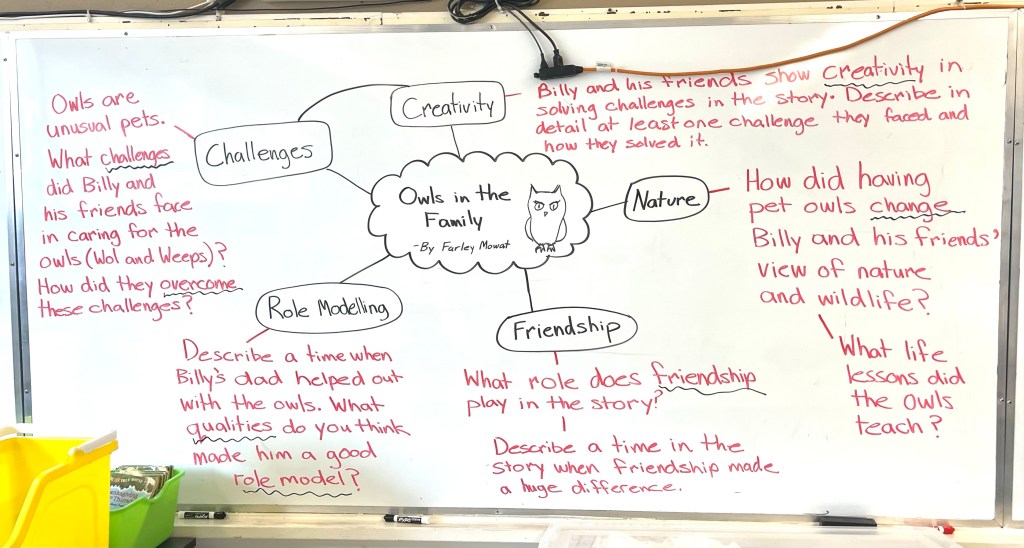 Owls in the
Family
-By Farley Mowat
Creativity
Billy and his friends show creativity in
solving challenges in the story. Describe in
detail at least one challenge they faced and
how they solved it.
Challenges
Owls are
unusual pets.
What challenges
did Billy and
his friends face
in caring for the
owls (Wol and Weeps)?
How did they overcome
these challenges?
Nature
How did having
pet owls change
Billy and his friends'
view of nature
and wildlife?
What life
lessons did
the owls
teach?
Role Modelling
Describe a time when
Billy's dad helped out
with the owls. What
qualities do you think
made him a good
role model?
Friendship
What role does friendship
play in the story?
Describe a time in the
story when friendship made
a huge difference.
EXPO